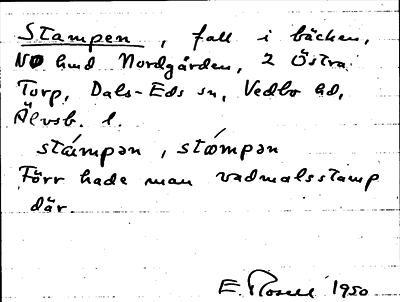 Stampen, fall i bäcken,
NO hmd Nordgården, 2 Östra
Torp, Dals-Eds sn, Vedbo hd,
Älvsb. l.
stámpən, stǿmpən
Förr hade man vadmalsstamp
där.
E. Rosell 1950